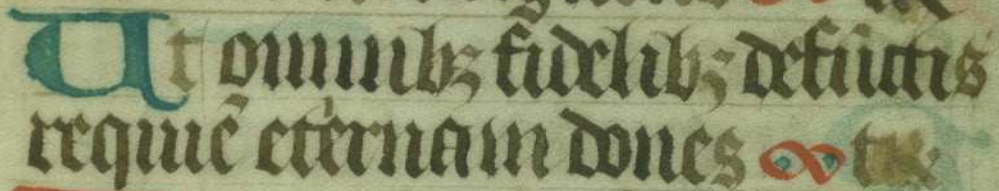 Ut omnibꝫ fidelibꝫ defūctis
requiē eternam dones te